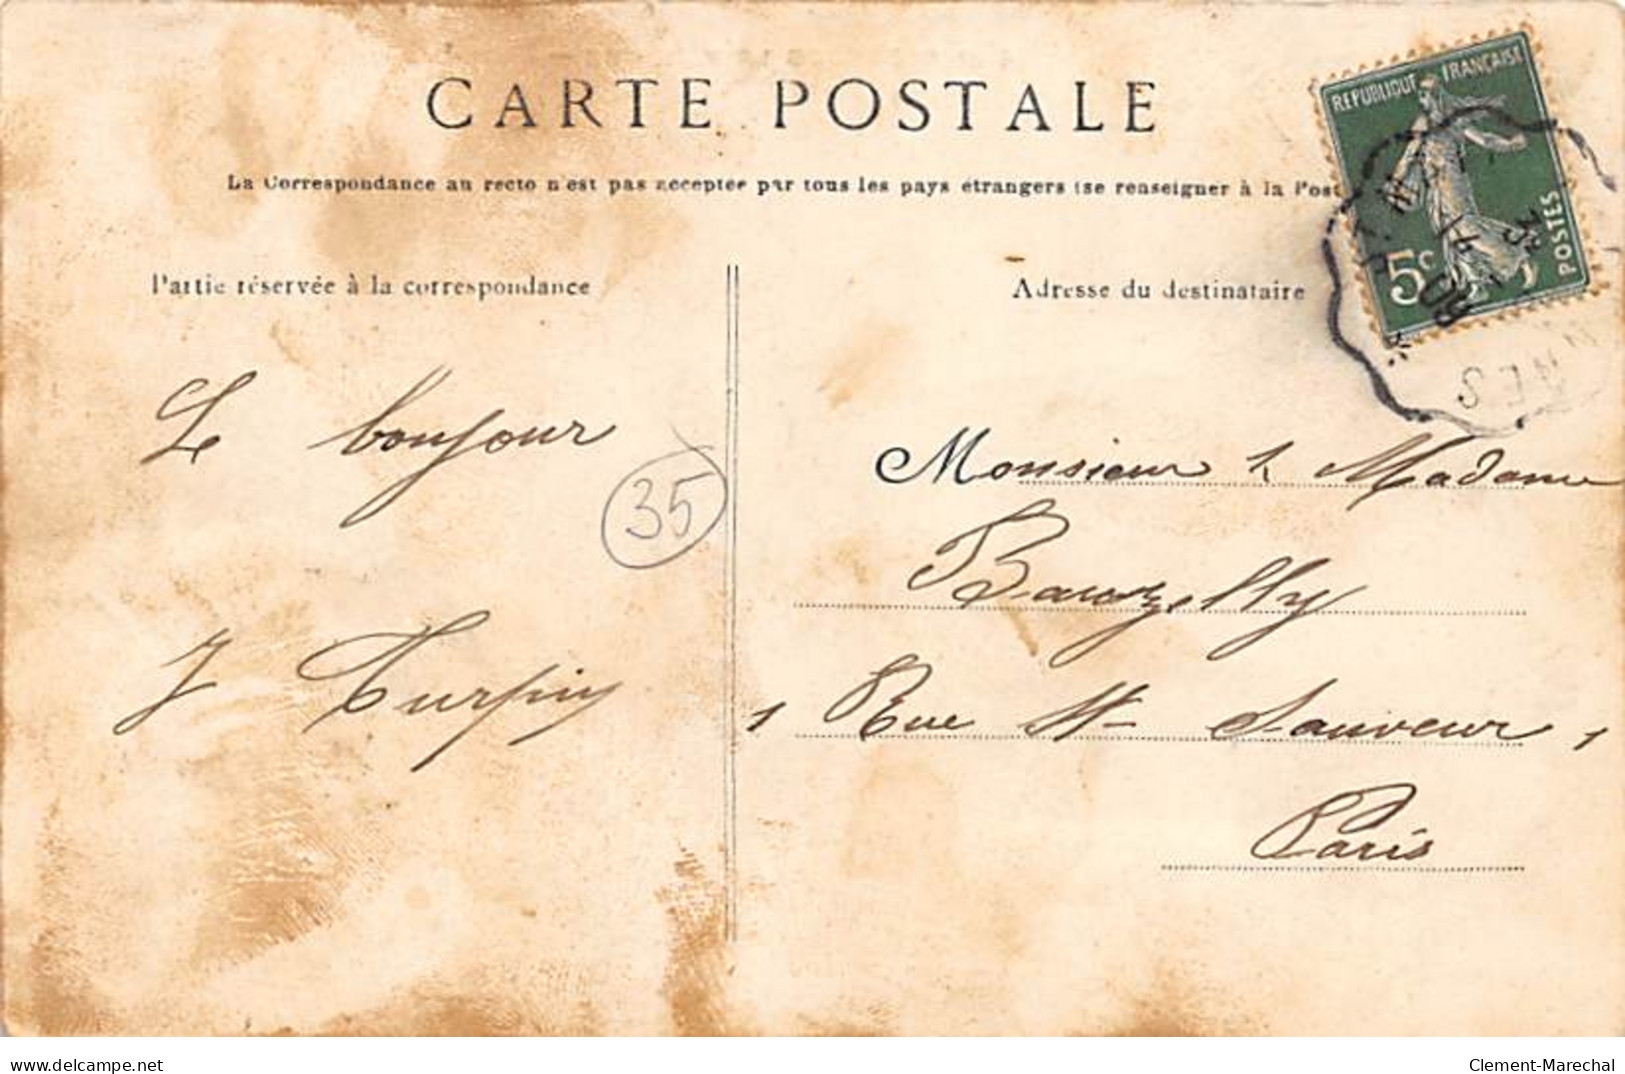 CARTE POSTALE
REPUBLIQUE FRANÇAISE
La Correspondance au recto n'est pas acceptée par tous les pays étrangers (se renseigner à la Post
POSTES
5c
Partie réservée à la correspondance
Adresse du destinataire
Le bonjour
35
J Turpin
Monsieur & Madame
Rue St Sauveur 1
Paris
delcampe.net
Clement-Marechal